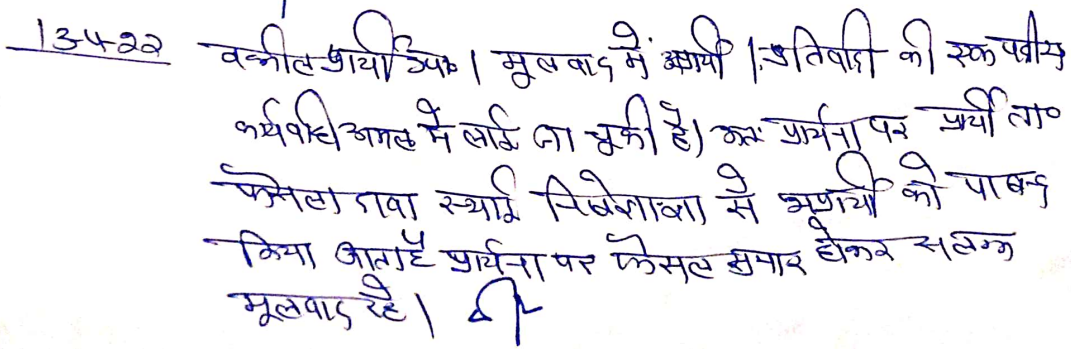 13-4-22 वकील प्रार्थी उप० । मूल वाद में अप्रार्थी । प्रतिवादी की एक पक्षीय
कार्यवाही अमल में लाई जा चुकी है। अतः प्रार्थना पत्र प्रार्थी ता०
फैसला दावा स्थाई निषेधाज्ञा से अप्रार्थी को पाबन्द
किया जाता है प्रार्थना पत्र फैसल शुमार होकर सलंग्न
मूलवाद रहे।